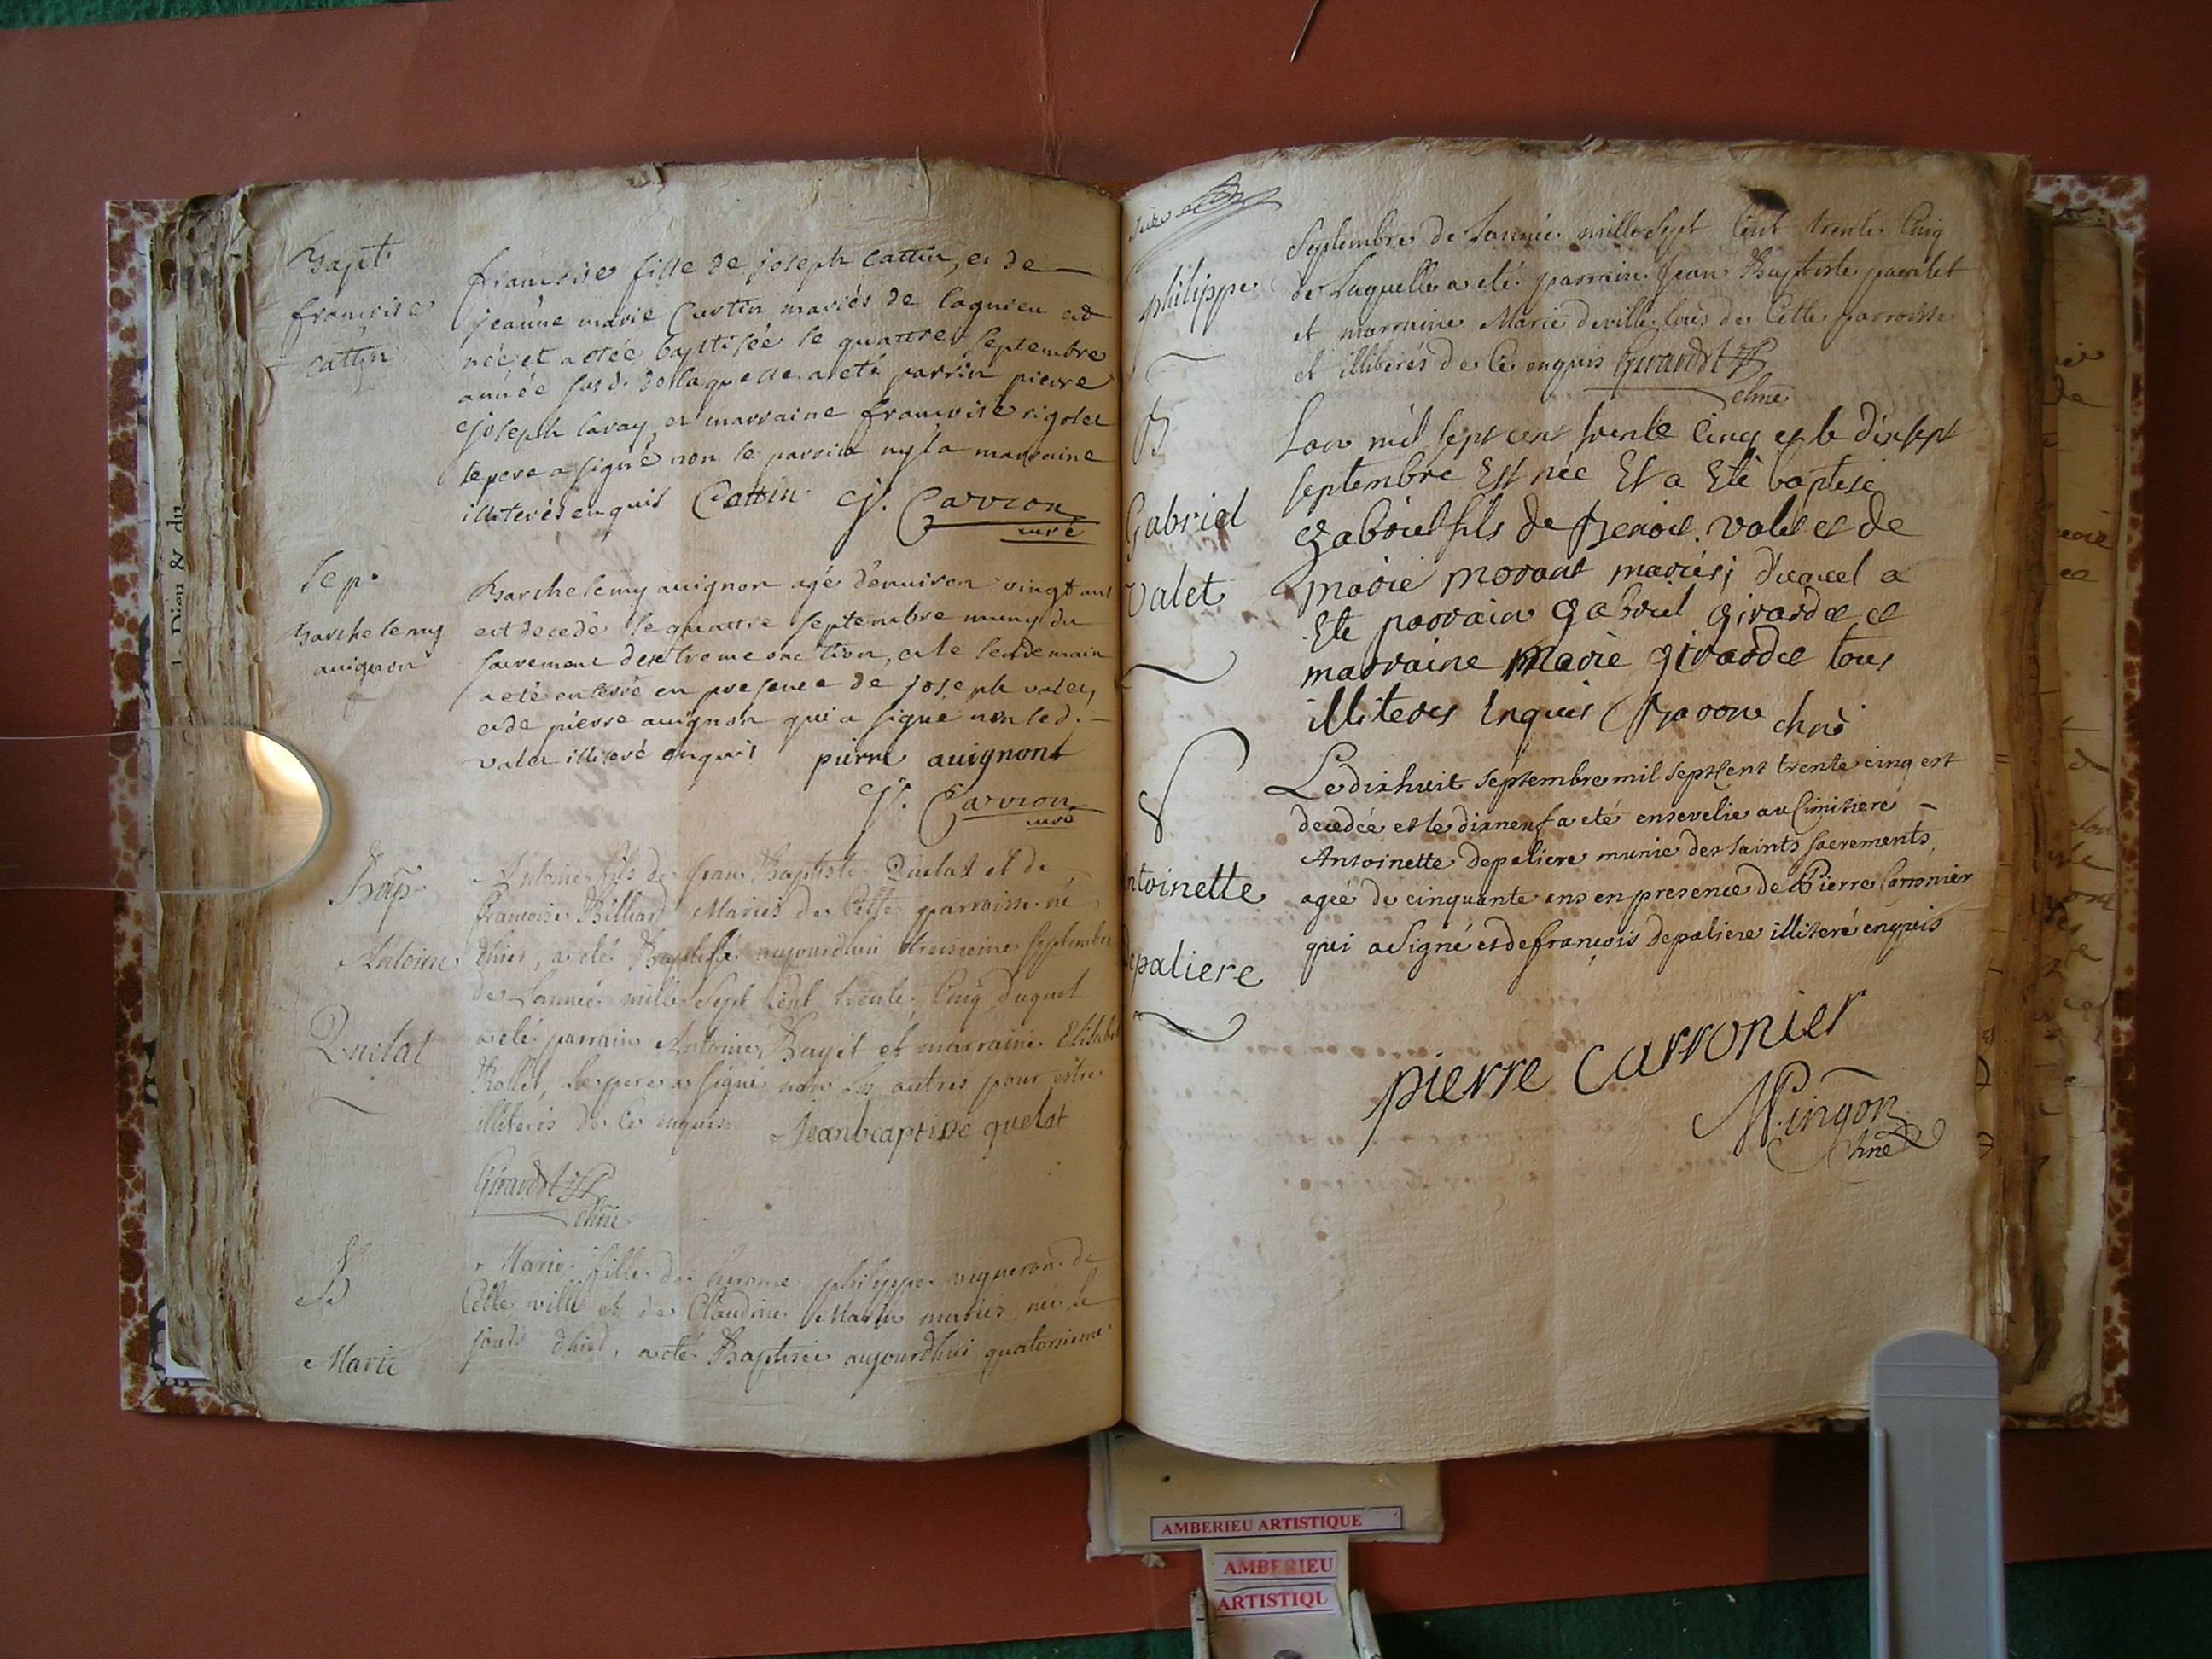 Bapt.
francoise
cattin
francoise fille de joseph cattin, et de
jeanne marie Curtin mariés de lagnieu est
née, et a etée baptisée le quattre septembre
année susd. de laquelle a eté parrin pierre
joseph caray, et marraine francoise rigolet
le pere a signé non le parrin ny la marraine
illiterés enquis Cattin J. Carrion
curé
Sep.
Barthelemy
auignon
Barthelemy auignon agé d'enuiron vingt ans
est decedé le quattre septembre muny du
sacrement d'extreme onction, et le lendemain
a eté enterré en presence de joseph valet,
et de pierre auignon qui a signé non led.
valet illiteré enquis pierre auignont
J. Carrion
curé
Bap
Antoine
Quelat
Antoine fils de Jean Baptiste Quelat et de
francoise Billiard Mariés de Cette parroisse né
d'hier, a eté Baptisé aujourdhui treizieme septembre
de L'année mille Sept Cent trente Cinq duquel
a eté parrain Antoine Bayet et marraine Elisabet
Rollet, Le pere a signé non les autres pour estre
illiterés de Ce enquis Jeanbaptiste quelat
Giraudet
chne
B
Marie
Marie fille de Jerome philippe vigneron de
Cette ville et de Claudine Marin mariés, née le
jour d'hier, a eté Baptisée aujourdhui quatorzieme
philippe
Septembre de L'année mille Sept Cent trente Cinq
de Laquelle a eté parrain Jean Baptiste
et marraine Marie deville tous de Cette parroisse
et illiterés de Ce enquis Giraudet
chne
B
Gabriel
Valet
L'an mil sept cent trente Cinq et le dixsept
septembre Est née Et a Eté baptisé
gabriel fils de Benoit valet et de
marie morant mariés; duquel a
Eté parrain gabriel girardet et
marraine Marie girardet tous
illiteres Enquis Baron chne
S
Antoinette
Depaliere
Le dixhuit septembre mil sept Cent trente cinq est
decedée et le dixneuf a eté ensevelie au Cimitiere
Antoinette Depaliere munie des Saints sacrements,
agée de cinquante ans en presence de Pierre Carronier
qui a signé et de françois Depaliere illiteré enquis
pierre Carronier
Mingon
chne
AMBERIEU ARTISTIQUE
AMBERIEU
ARTISTIQU